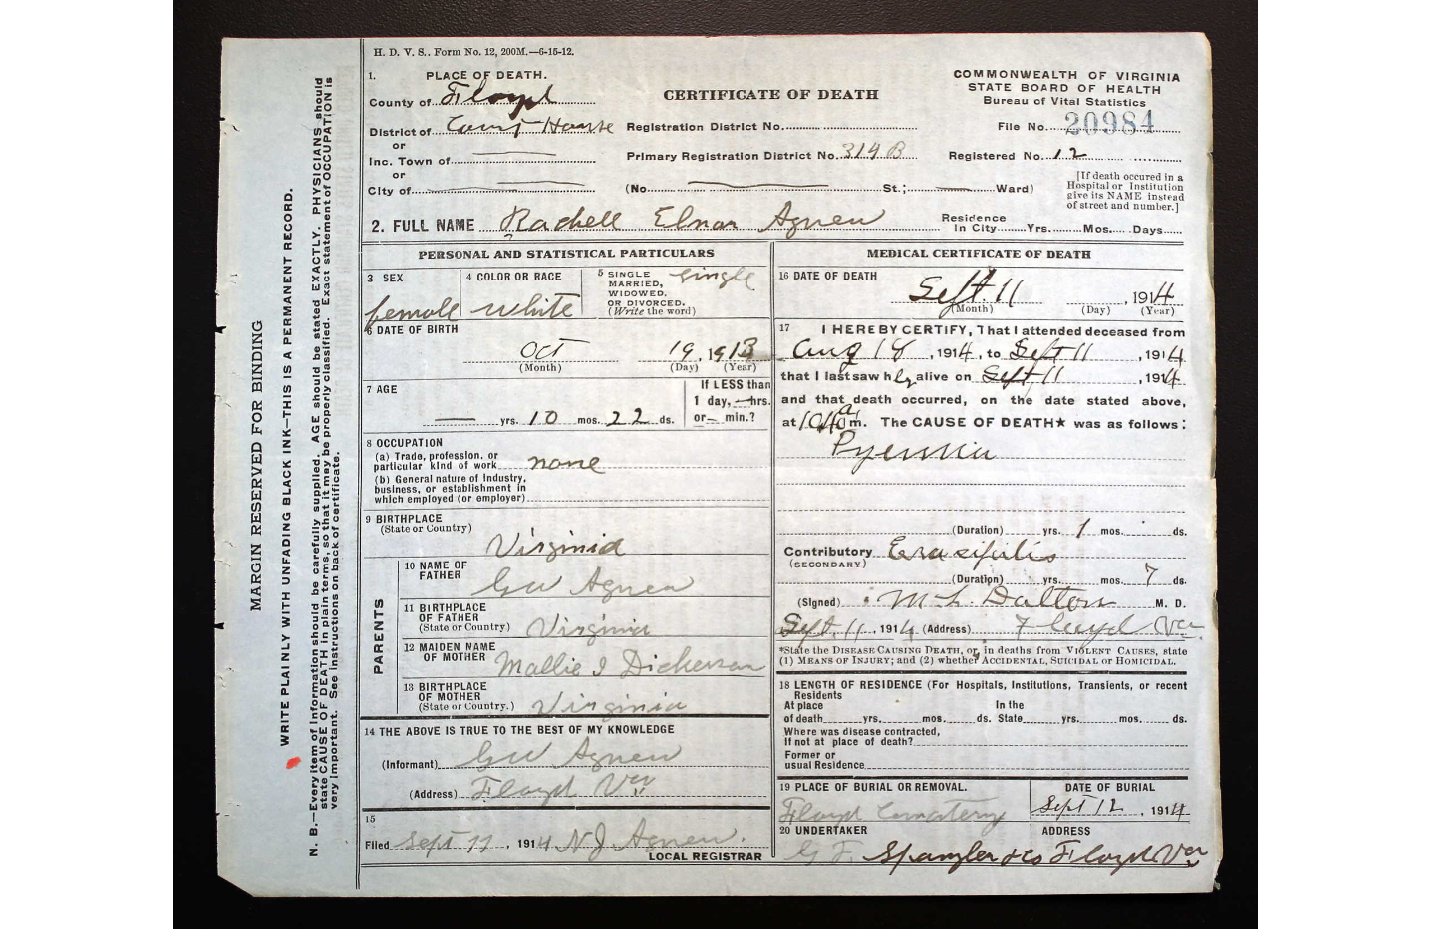 H. D. V. S.. Form No. 12, 200M.—6-15-12.
MARGIN RESERVED FOR BINDING
WRITE PLAINLY WITH UNFADING BLACK INK—THIS IS A PERMANENT RECORD.
N. B.—Every item of information should be carefully supplied. AGE should be stated EXACTLY. PHYSICIANS should
state CAUSE OF DEATH in plain terms, so that it may be properly classified. Exact statement of OCCUPATION is
very important. See instructions on back of certificate.
1. PLACE OF DEATH.
County of Floyd
District of Court House
or
Inc. Town of
or
City of
CERTIFICATE OF DEATH
Registration District No.
Primary Registration District No. 314 B
(No. St.; Ward)
COMMONWEALTH OF VIRGINIA
STATE BOARD OF HEALTH
Bureau of Vital Statistics
File No. 20984
Registered No. 12
[If death occured in a
Hospital or Institution
give its NAME instead
of street and number.]
2. FULL NAME Rachell Elnor Agnew
Residence
In City Yrs. Mos. Days
PERSONAL AND STATISTICAL PARTICULARS
3 SEX
female
4 COLOR OR RACE
white
5 SINGLE
MARRIED,
WIDOWED,
OR DIVORCED.
(Write the word)
single
6 DATE OF BIRTH
Oct 19, 1913
(Month) (Day) (Year)
7 AGE
yrs. 10 mos. 22 ds.
If LESS than
1 day, hrs.
or min.?
8 OCCUPATION
(a) Trade, profession, or
particular kind of work none
(b) General nature of Industry,
business, or establishment in
which employed (or employer)
9 BIRTHPLACE
(State or Country)
Virginia
PARENTS
10 NAME OF
FATHER
GW Agnew
11 BIRTHPLACE
OF FATHER
(State or Country)
Virginia
12 MAIDEN NAME
OF MOTHER
Mallie I Dickerson
13 BIRTHPLACE
OF MOTHER
(State or Country.)
Virginia
14 THE ABOVE IS TRUE TO THE BEST OF MY KNOWLEDGE
(Informant) GW Agnew
(Address) Floyd Va
15
Filed Sept 11, 1914 N J Agnew.
LOCAL REGISTRAR
MEDICAL CERTIFICATE OF DEATH
16 DATE OF DEATH
Sept. 11, 1914
(Month) (Day) (Year)
17 I HEREBY CERTIFY, That I attended deceased from
Aug 18, 1914, to Sept 11, 1914
that I last saw her alive on Sept 11, 1914
and that death occurred, on the date stated above,
at a m. The CAUSE OF DEATH★ was as follows:
Pyemia
(Duration) yrs. 1 mos. ds.
Contributory Erasipilis
(SECONDARY)
(Duration) yrs. mos. 7 ds.
(Signed) M L Dalton M. D.
Sept. 11, 1914 (Address) Floyd Va.
*State the DISEASE CAUSING DEATH, or, in deaths from VIOLENT CAUSES, state
(1) MEANS OF INJURY; and (2) whether ACCIDENTAL, SUICIDAL or HOMICIDAL.
18 LENGTH OF RESIDENCE (For Hospitals, Institutions, Transients, or recent
Residents
At place In the
of death yrs. mos. ds. State yrs. mos. ds.
Where was disease contracted,
If not at place of death?
Former or
usual Residence
19 PLACE OF BURIAL OR REMOVAL.
Floyd Cemetery
DATE OF BURIAL
Sept 12, 1914
20 UNDERTAKER
ADDRESS
G F. Spangler & Co Floyd Va